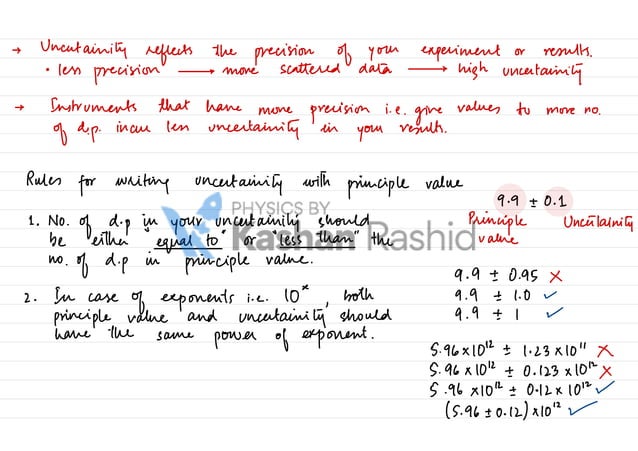 → Uncertainity reflects the precision of your experiment or results.
• less precision → more scattered data → high uncertainity
→ Instruments that have more precision i.e. give values to more no.
of d.p. incur less uncertainity in your result.
Rules for writing uncertainity with principle value
9.9 ± 0.1
Principle value
Uncertainity
1. No. of d.p in your uncertainity should
be either "equal to" or "less than" the
no. of d.p in principle value.
PHYSICS BY
Kashan Rashid
9.9 ± 0.95 ×
9.9 ± 1.0 ✓
9.9 ± 1 ✓
2. In case of exponents i.e. 10ˣ, both
principle value and uncertainity should
have the same power of exponent.
5.96 × 10¹² ± 1.23 × 10¹¹ ×
5.96 × 10¹² ± 0.123 × 10¹² ×
5.96 × 10¹² ± 0.12 × 10¹² ✓
(5.96 ± 0.12) × 10¹² ✓